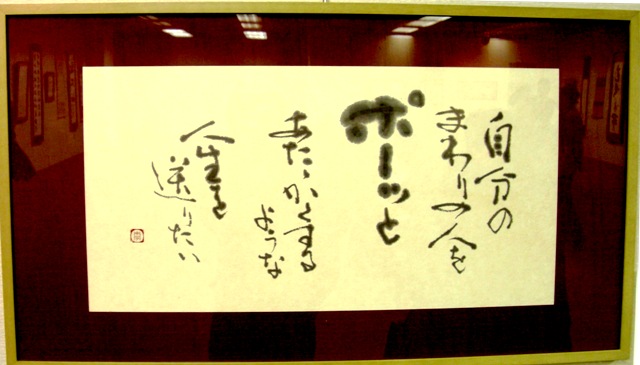 自分の
まわりの人を
ポーッと
あたゝかくする
ような
人生を
送りたい